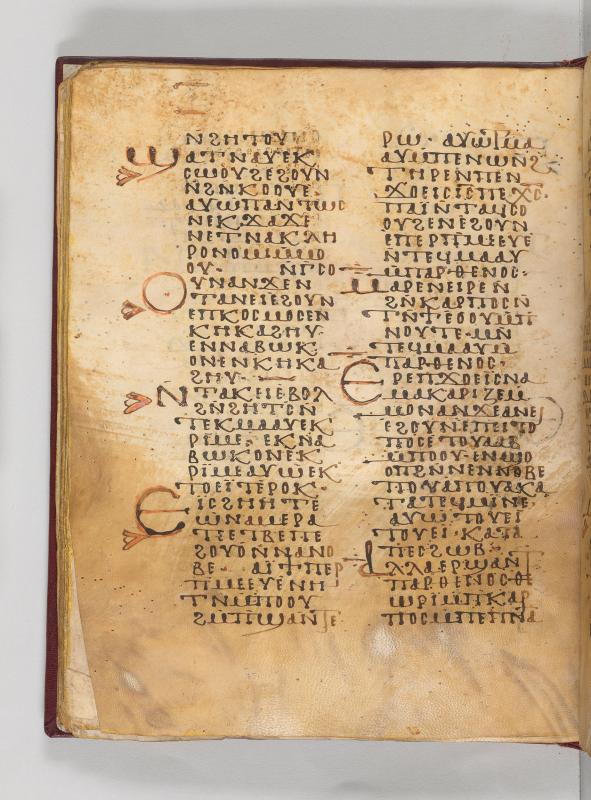 ⲛ̅ϩⲏⲧⲟⲩ
ϣⲁⲧⲛⲁⲩⲉⲕ
ⲥⲱⲟⲩϩⲉϩⲟⲩⲛ
ⲛ̅ϩⲛⲕⲟⲟⲩⲉ·
ⲁⲩⲱⲡⲁⲛⲧⲱⲥ
ⲛⲉⲕϫⲁϫⲉ
ⲛⲉⲧⲛⲁⲕⲗⲏ
ⲣⲟⲛⲟⲙⲓ
ⲟⲩ·
ⲟⲩⲛⲁⲛϫⲉⲛ
ⲧⲁⲛⲉⲓⲉϩⲟⲩⲛ
ⲉⲡⲕⲟⲥⲙⲟⲥⲉⲛ
ⲕⲏⲕⲁϩⲏⲩ·
ⲉⲛⲛⲁⲃⲱⲕ
ⲟⲛⲉⲛⲕⲏⲕⲁ
ϩⲏⲩ·
ⲛ̅ⲧⲁⲕⲉⲓⲉⲃⲟⲗ
ϩⲛ̅ϩⲏⲧⲥ̅ⲛ̅
ⲧⲉⲕⲙⲁⲁⲩⲉⲕ
ⲣⲓⲙⲉ· ⲉⲕⲛⲁ
ⲃⲱⲕⲟⲛⲉⲕ
ⲣⲓⲙⲉⲁⲩⲱⲉⲕ
ⲧⲟⲉⲓⲧⲉⲣⲟⲕ·
ⲉⲓⲥϩⲏⲏⲧⲉ
ⲱⲛⲁⲙⲉⲣⲁ
ⲧⲉⲉⲧⲃⲉⲡⲉ
ϩⲟⲩⲟⲛ̅ⲛⲁⲛⲟ
ⲃⲉ· ⲁⲓϯⲡⲉⲣ
ⲡⲙⲉⲉⲩⲉⲛⲏ
ⲧⲛ̅ⲙ̅ⲡⲟⲟⲩ
ϩⲙ̅ⲡϣⲁⲛ̅ⲧⲉ
ⲣⲱ· ⲁⲩⲱ
ⲁⲩⲱⲡⲉⲛⲱⲛϩ̅
ⲧⲏⲣⲉⲛⲡⲉⲛ
ϫⲟⲉⲓⲥⲓ̅ⲥ̅ⲡⲉⲭ̅ⲥ̅·
ⲡⲁⲓⲛ̅ⲧⲁϥⲥⲟ
ⲟⲩϩⲉⲛⲉϩⲟⲩⲛ
ⲉⲡⲉⲣⲡⲙⲉⲉⲩⲉ
ⲛ̅ⲧⲉϥⲙⲁⲁⲩ
ⲙ̅ⲡⲁⲣⲑⲉⲛⲟⲥ·
ⲙⲁⲣⲉⲛⲉⲓⲣⲉⲛ̅
ϩⲛ̅ⲕⲁⲣⲡⲟⲥⲛ̅
ⲧⲙⲛ̅ⲧⲣⲉϥ
ⲛⲟⲩⲧⲉ·ⲙⲛ
ⲧⲉϥⲙⲁⲁⲩⲙ̅
ⲡⲁⲣⲑⲉⲛⲟⲥ·
ⲉⲣⲉⲡϫⲟⲉⲓⲥⲛⲁ
ⲙⲁⲕⲁⲣⲓⲍⲉⲙ̅
ⲙⲟⲛⲁⲛϫⲉⲁⲛⲉⲓ
ⲉϩⲟⲩⲛⲉⲡⲉⲓⲧⲟ
ⲡⲟⲥⲉⲧⲟⲩⲁⲁⲃ
ⲙ̅ⲡⲟⲟⲩ·ⲉⲛⲁⲡⲟ
ⲡ̅ϩⲛ̅ⲛⲉⲛⲛⲟⲃⲉ
ⲡⲟⲩⲁⲡⲟⲩⲁⲕⲁ
ⲧⲁⲧⲉϥⲙⲓⲛⲉ·
ⲁⲩⲱ ⲧⲟⲩⲉⲓ
ⲧⲟⲩⲉⲓ·ⲕⲁⲧⲁ
ⲡⲉⲥϩⲱⲃ·
ⲁⲗⲗⲁⲉⲣϣⲁⲛⲧ
ⲡⲁⲣⲑⲉⲛⲟⲥⲑⲉ
ⲱⲣⲓⲙ̅ⲡⲕⲁⲣ
ⲡⲟⲥⲙ̅ⲡⲉⲡⲛ̅ⲁ̅